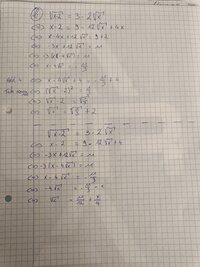 √x-2 = 3 - 2√x
⇔ x-2 = 9 - 12√x + 4x
⇔ x - 4x + 12√x = 9 + 2
⇔ -3x + 12√x = 11
⇔ -3(x - 4√x) = 11
⇔ x - 4√x = -11/3
⇔ x - 4√x + 4 = -11/3 + 4
⇔ (√x - 2)² = 1/3
⇔ √x - 2 = √1/3
⇔ √x = √1/3 + 2
√x-2 = 3 - 2√x
⇔ x - 2 = 9 - 12√x + 4
⇔ -3x + 12√x = 11
⇔ -3(x - 4√x) = 11
⇔ x - 4√x = -11/3
⇔ -4√x = -11/3 - x
⇔ √x = 11/12 + x/4